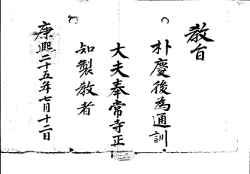 教旨
朴慶後為通訓
大夫奉常寺正
知製教者
康熙二十五年七月十二日